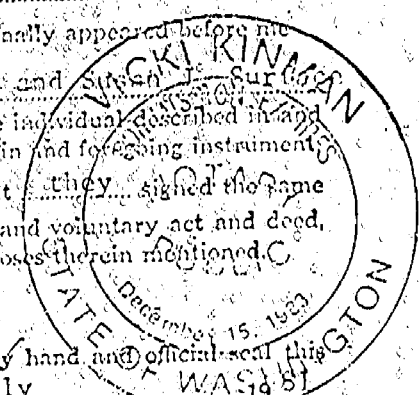 nally appeared before me
and Susan J.
e individual described in and
in and foregoing instrument,
t they signed the same
and voluntary act and deed,
oses therein mentioned.
y hand and official seal this
ly
VICKI KINMAN
COMMISSION EXPIRES
NOTARY
PUBLIC
December 15, 1983
STATE OF WASHINGTON